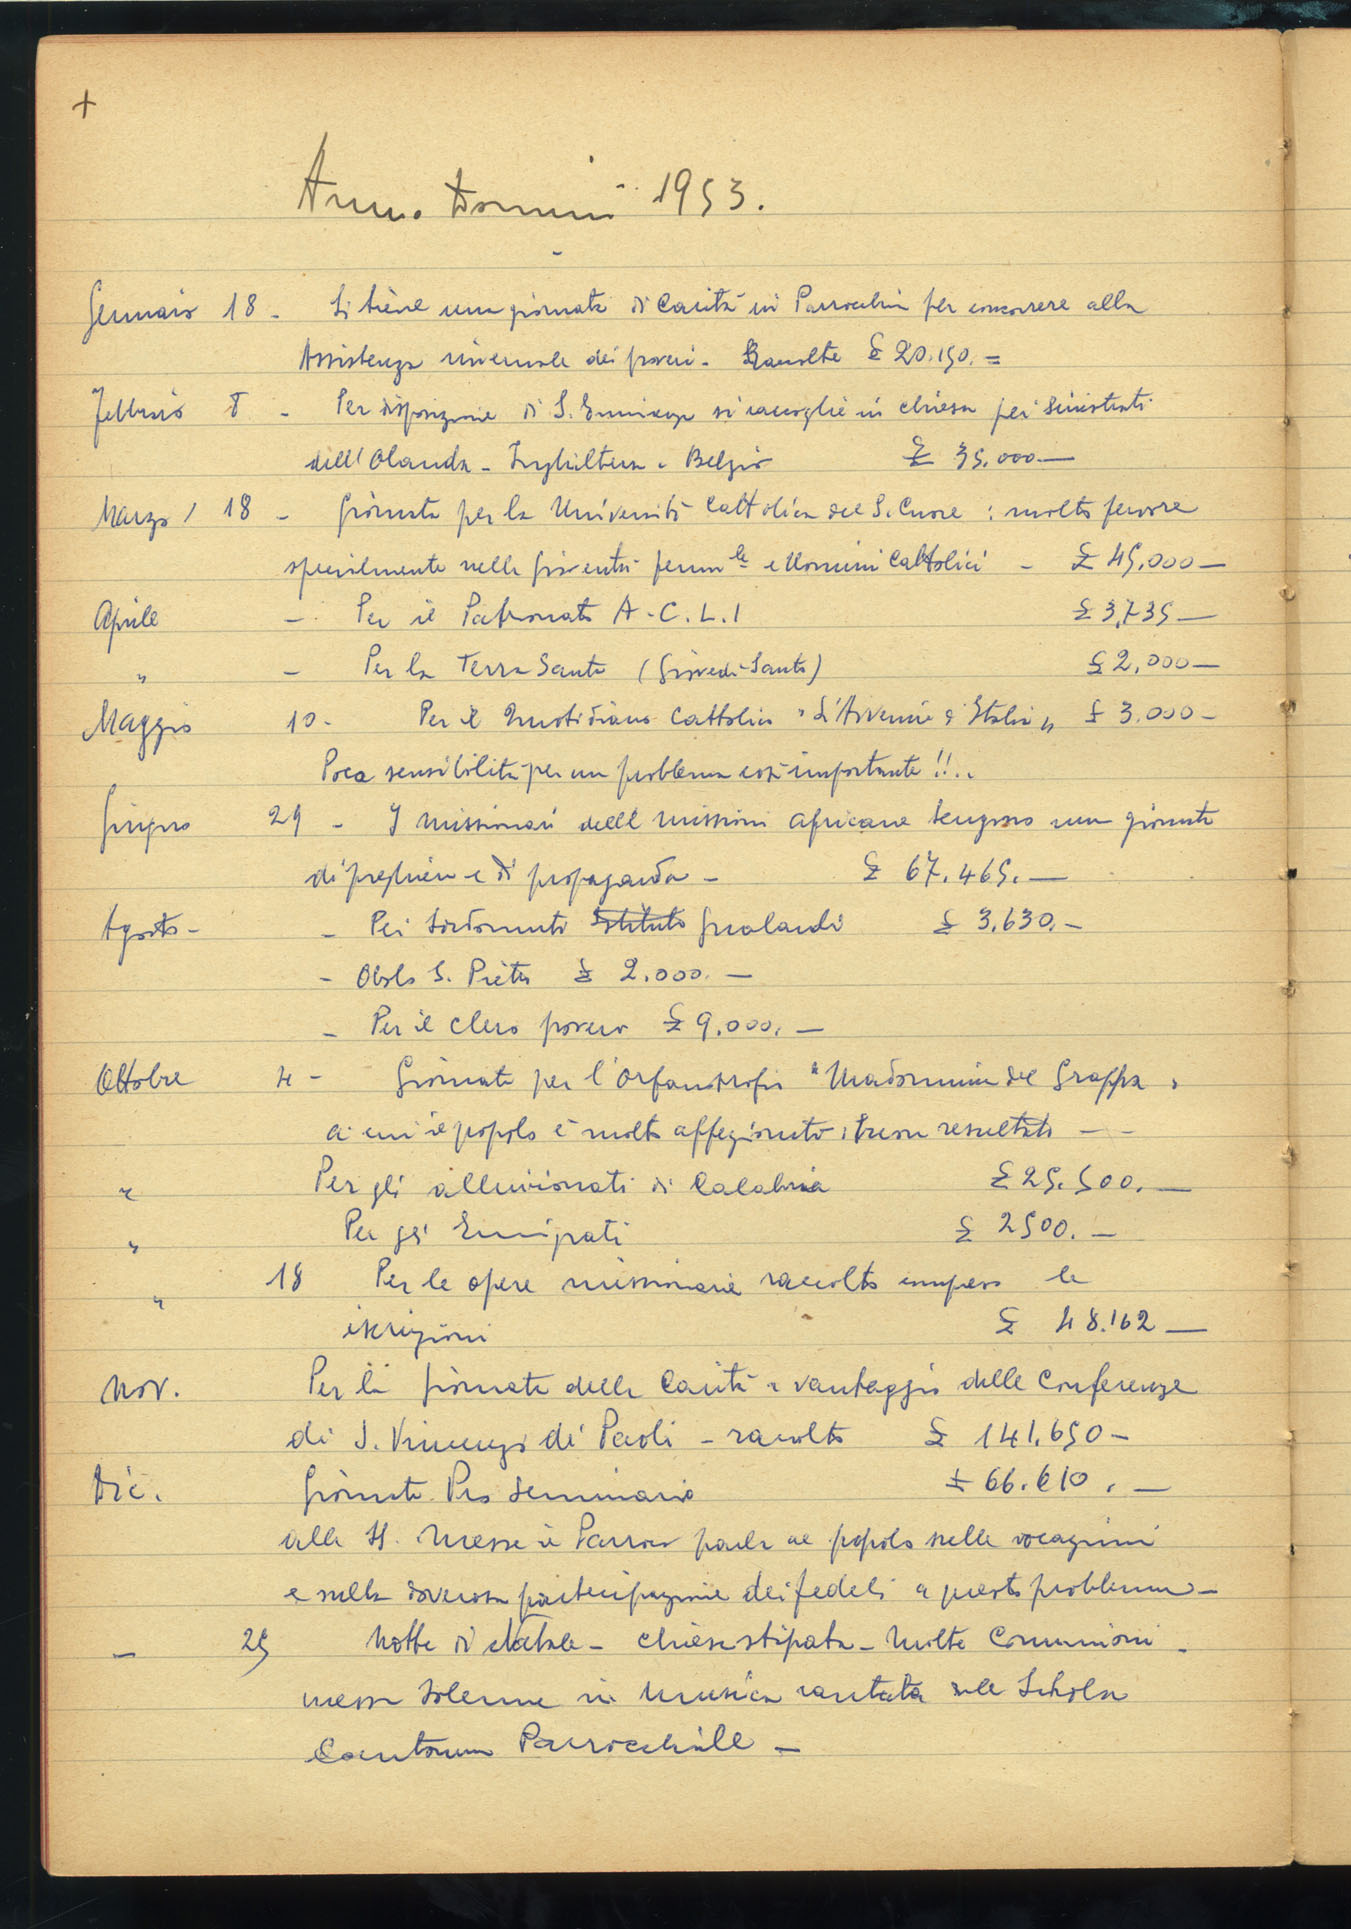 +
Anno Domini 1953.
Gennaio 18 - Si tiene una giornata di Carità in Parrocchia per concorrere alla
Assistenza invernale dei poveri - Raccolte £ 20.150. =
Febbraio 8 - Per disposizione di S. Eminenza si raccoglie in chiesa pei Sinistrati
dell'Olanda - Inghilterra e Belgio £ 35.000 —
Marzo / 18 - Giornata per la Università Cattolica del S. Cuore : molto fervore
specialmente nella Gioventù femm le e Uomini Cattolici - £ 45.000 —
Aprile - Per il Patronato A.C.L.I £ 3.735 —
" - Per la Terra Santa (Giovedì Santo) £ 2.000 —
Maggio 10 - Per il Quotidiano Cattolico "L'Avvenire d'Italia" £ 3.000 -
Poca sensibilità per un problema così importante !!..
Giugno 29 - I Missionari delle missioni africane tengono una giornata
di preghiera e di propaganda - £ 67.465. —
Agosto - - Pei Sordomuti Istituto Gualandi £ 3.630. -
- Obolo S. Pietro £ 2.000. —
- Per il clero povero £ 9.000. —
Ottobre 4 - Giornata per l'Orfanotrofio "Madonnina del Grappa "
a cui il popolo è molto affezionato : buon resultato - -
" Per gli alluvionati di Calabria £ 25.500. —
" Per gli Emigrati £ 2500. —
" 18 Per le opere missionarie raccolto compreso le
iscrizioni £ 48.162 —
Nov. Per la giornata della Carità a vantaggio delle Conferenze
di S. Vincenzo di Paoli - raccolto £ 141.650 -
Dic. Giornata Pro Seminario £ 66.610 . —
alle SS. Messe il Parroco parla al popolo sulle vocazioni
e sulla doverosa partecipazione dei fedeli a questo problema -
— 25 Notte di Natale - Chiesa stipata - Molte Comunioni -
messa Solenne in Musica cantata Schola
Cantorum Parrocchiale -